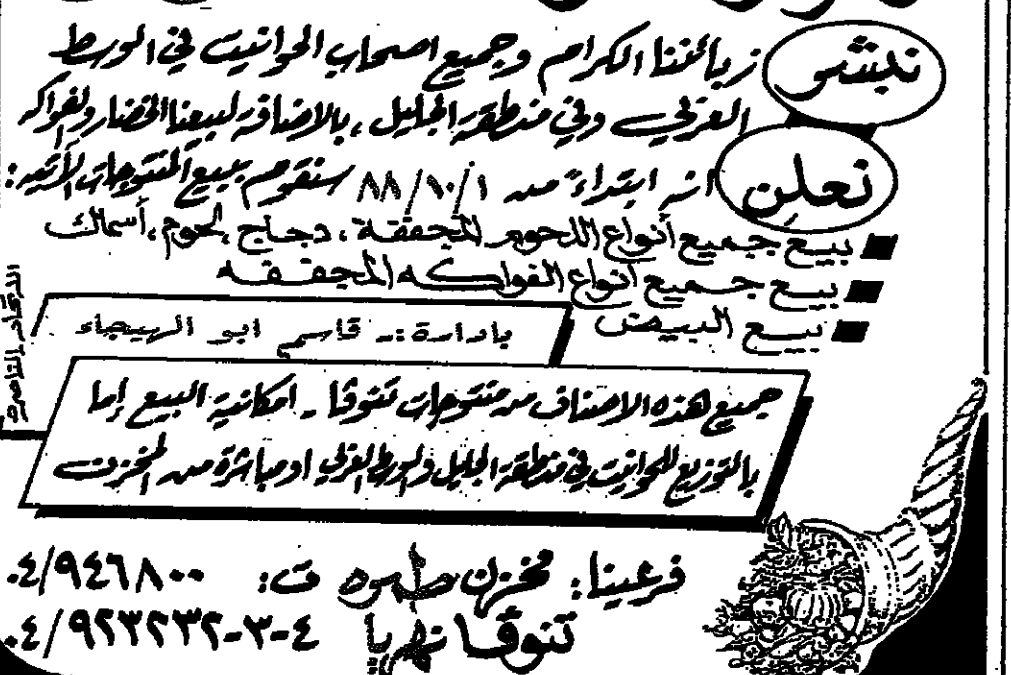 نبشر زبائننا الكرام وجميع اصحاب الحوانيت في الوسط
العربي وفي منطقة الجليل، بالاضافة لبيعنا الخضار والفواكه
نعلن انه ابتداءً من ٨٨/١٠/١ سنقوم ببيع المنتوجات الآتيه:
بيع جميع أنواع اللحوم المجففة، دجاج، لحوم، أسماك
بيع جميع أنواع الفواكه المجففه
بيع البيض
بادارة:- قاسم ابو الهيجاء
الاتحاد الناصره
جميع هذه الاصناف من منتوجات تنوفا - امكانية البيع إما
بالتوزيع للحوانيت في منطقة الجليل والوسط العربي او مباشرة من المخزن
فرعينا: مخزن طمره ت: ٠٤/٩٤٦٨٠٠
تنوفا نهريا ٤-٣-٩٢٣٢٣٢/٠٤